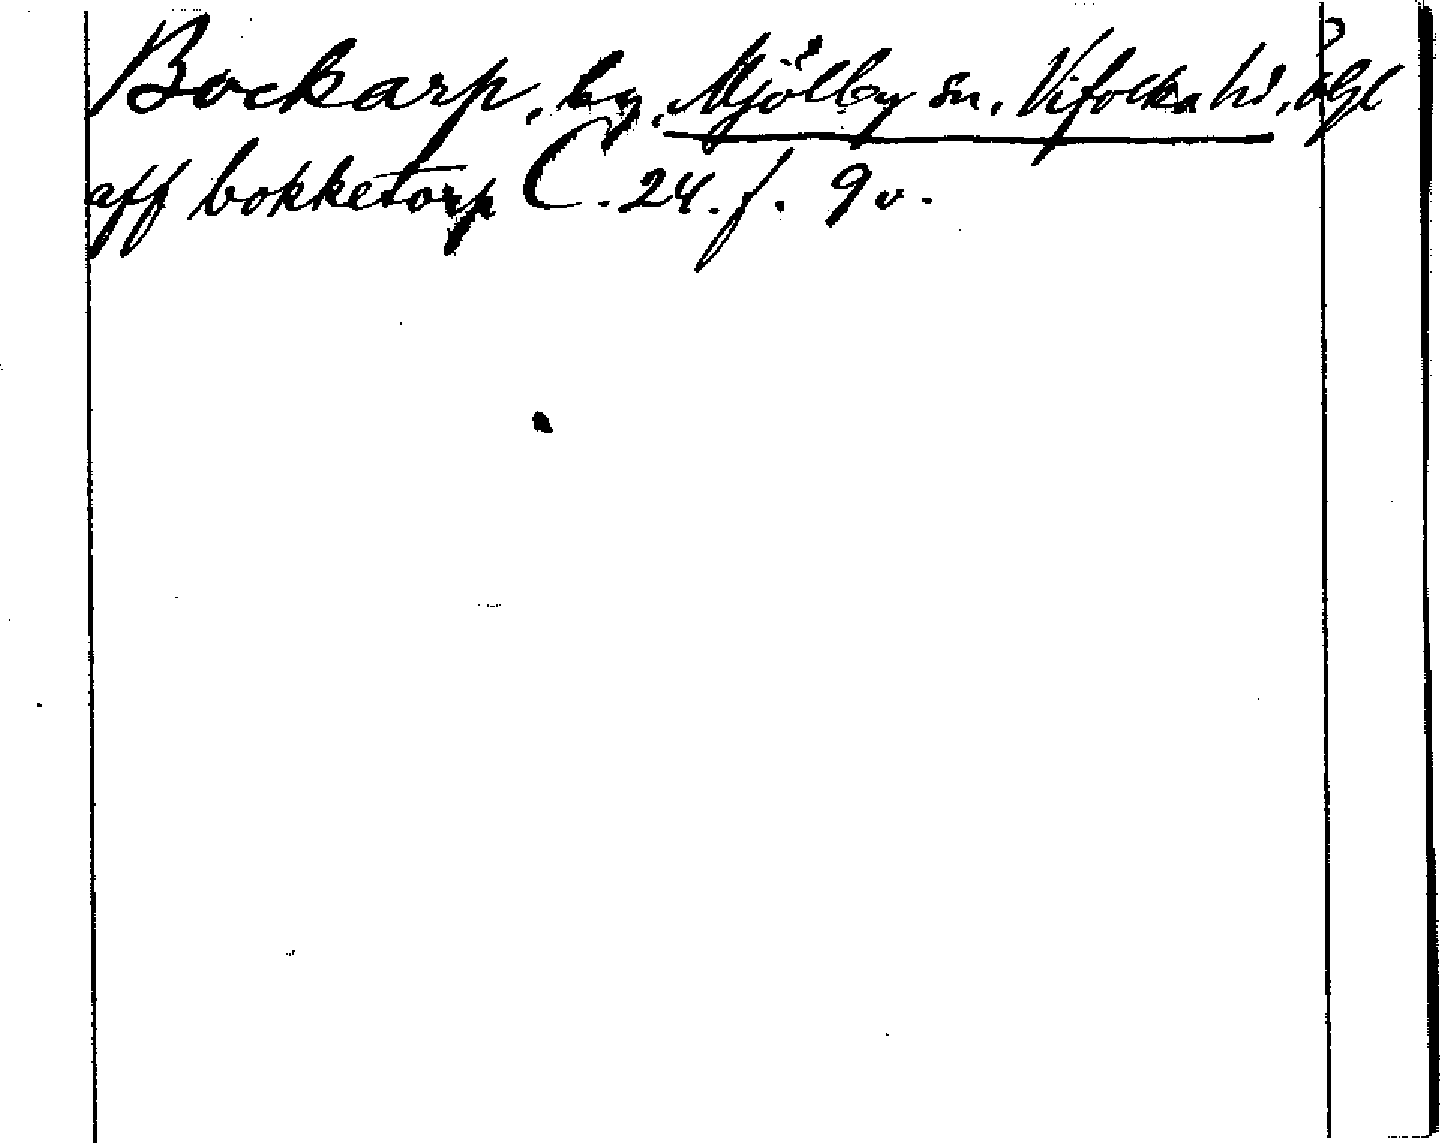 Bockarp, by, Mjölby sn, Vifolka hd, Ögl
aff bokketorp C. 24. f. 9 v.